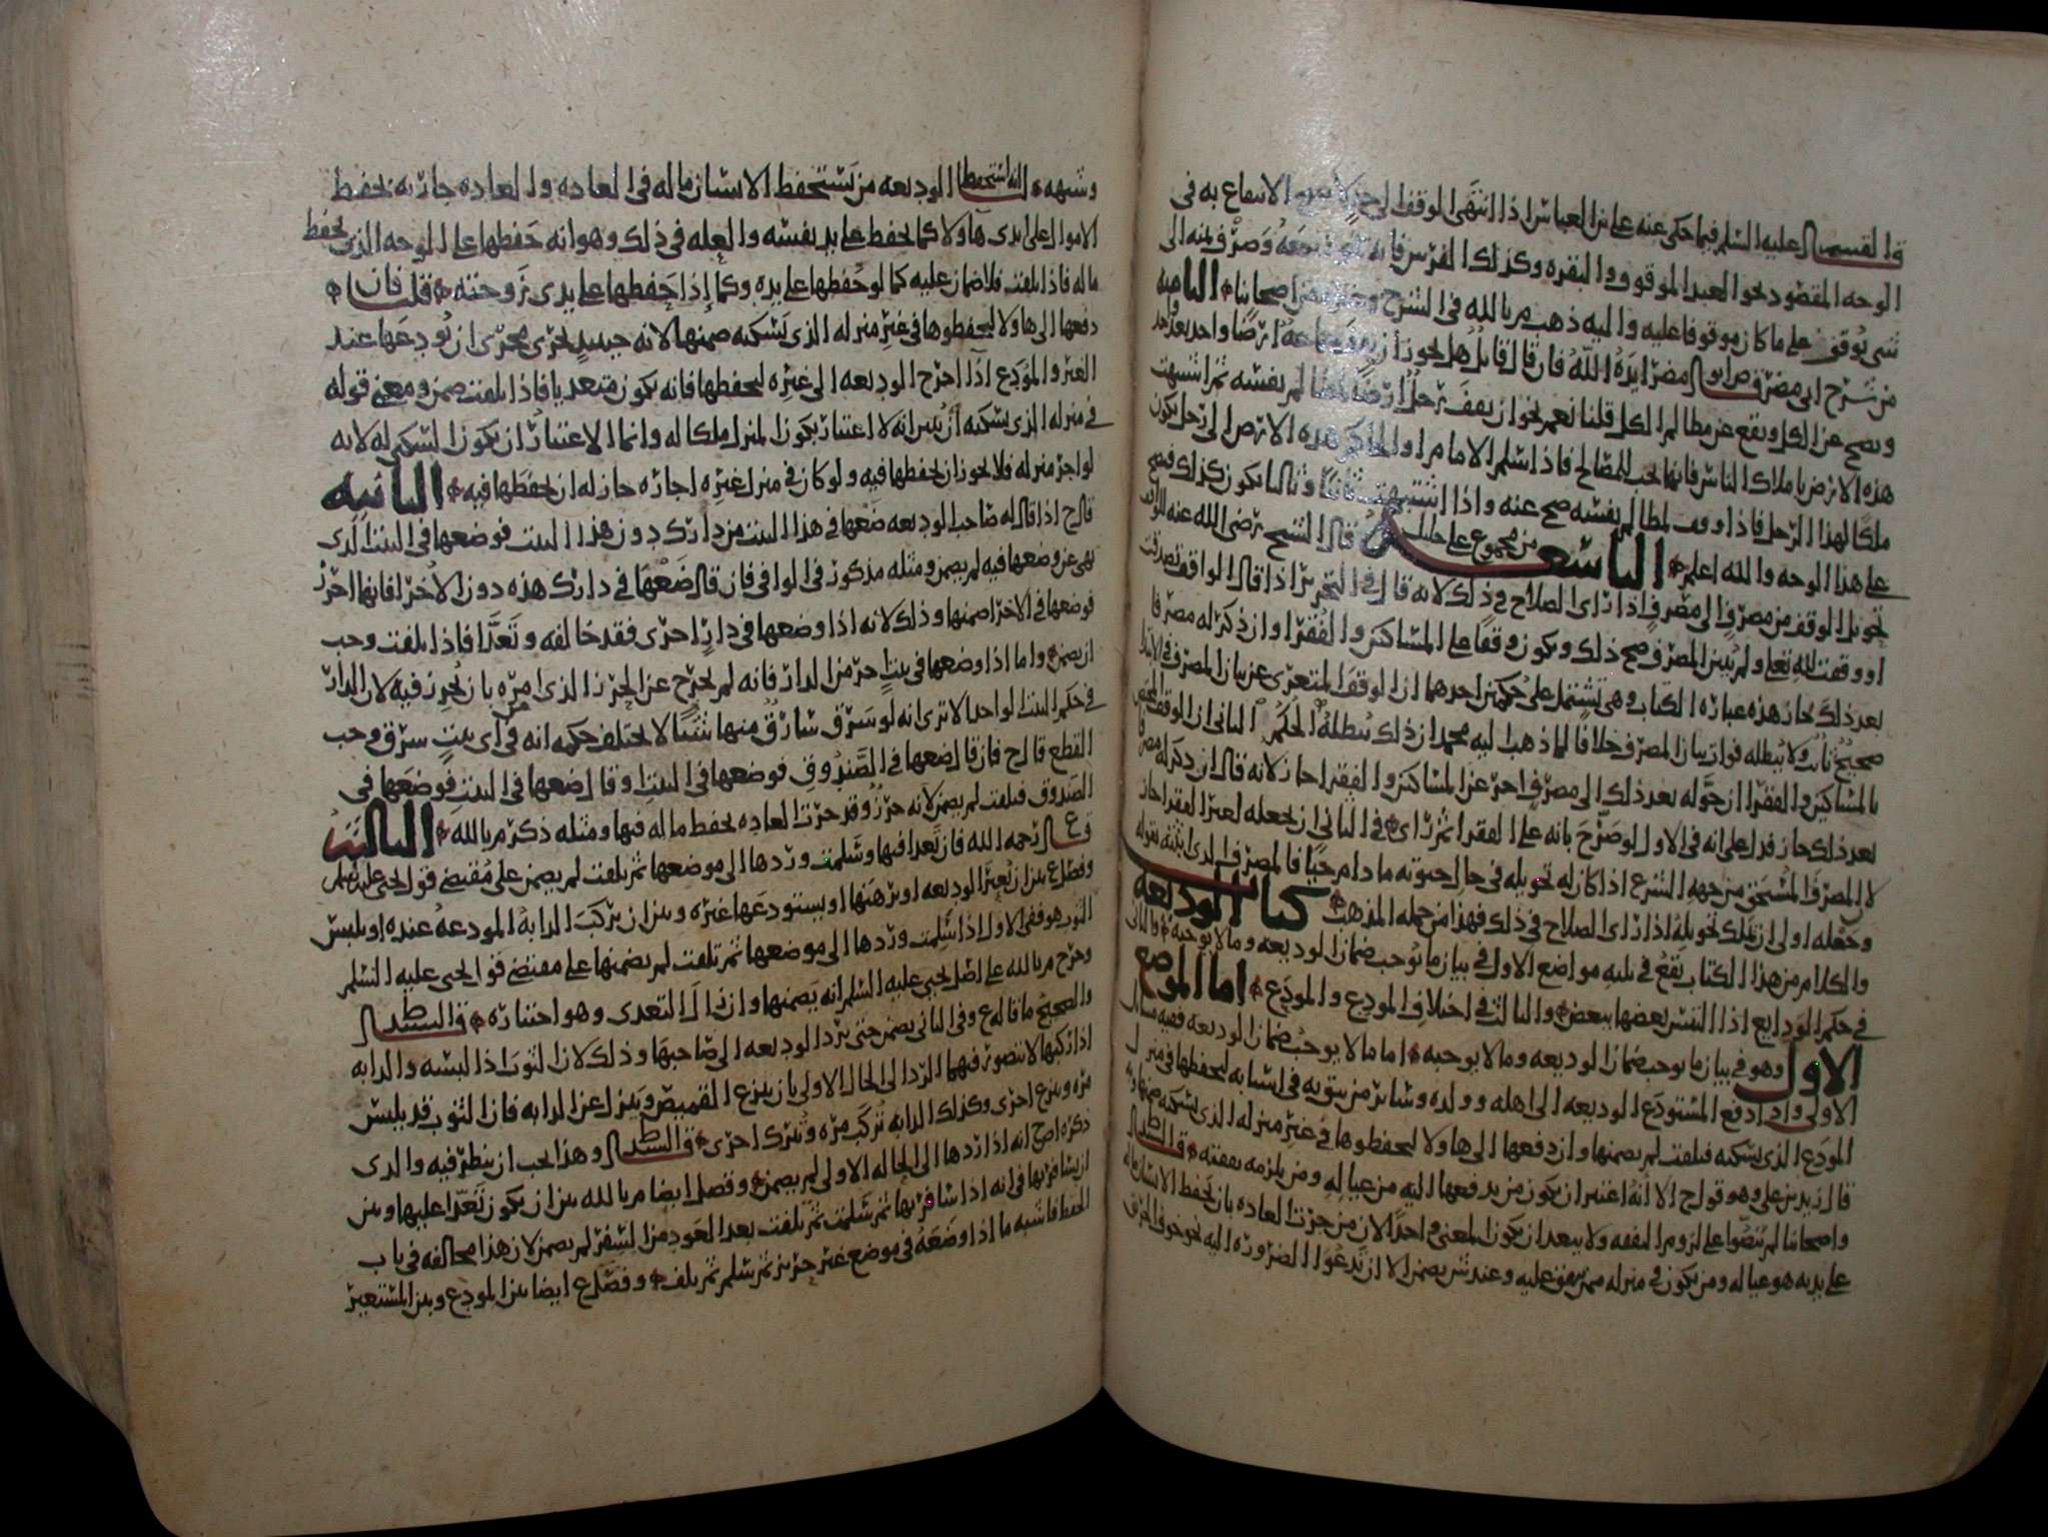 قال القسم عليه السلم فيما حكى عنه على بن العباس اذا انتهى الوقف الى حد لا الانتفاع به في
الوجه المقصود نحو العبد الموقوف والبقره وكذلك الفرس فانه بيعه وصرف ثمنه الى
شي يوقف على ما كان موقوفا عليه واليه ذهب م بالله في الشرح اصحابنا الثامنه
من شرح ابي مضر قال ابو مضر ايده الله فان قال قايل هل يجوز ان ارضا واحد بعد واحد
ويصح عن الكل ويقع عن مظالم الكل قلنا نعم نحو ان يقف رجل ارضا لمظالم نفسه ثم اشتبهت
هذه الارض باملاك الناس فانها تجب للمصالح فاذا سلم الامام او الحاكم هذه الارض الى رجل يكون
ملكا لهذا الرجل فاذا وقف لمظالم نفسه صح عنه واذا اشتبهت ثانيا وثالثا يكون كذلك فيصح
على هذا الوجه والله اعلم التاسعه من مجموع علي خليل قال الشيخ رضي الله عنه
تحويل الوقف من مصرف الى مصرف اذا راى الصلاح في ذلك لانه قال في التحرير اذا قال الواقف تصدقت
او وقفت لله تعالى ولم يبين المصرف صح ذلك ويكون وقفا على المساكين والفقرا وان ذكر له مصرفا
بعد ذلك جاز هذه عبارة الكتاب وهي تشتمل على حكمين احدهما ان الوقف المتعري عن بيان المصرف في الابتدا
صحيح ثابت ولا يبطله فوات بيان المصرف خلافا لما ذهب اليه محمد ان ذلك يبطله الحكم الثاني ان الوقف
بالمساكين والفقرا ان حوله بعد ذلك الى مصرف اخر عن المساكين والفقرا جاز لانه قال ان ذكر له مصرفا
بعد ذلك جاز فدل على انه في الاول لو صرح بانه على الفقرا ثم راى في الثاني ان يجعله لغير الفقرا جاز
لان المصرف المستحق من جهه الشرع اذا كان له تحويله في حال حيوته ما دام حيا فالمصرف الذي اثبته بقوله
وجعله اولى ان يملك تحويله اذا راى الصلاح في ذلك فهذا من جمله المذهب كتاب الوديعه
والكلام من هذا الكتاب يقع في ثلثه مواضع الاول في بيان ما يوجب ضمان الوديعه وما لا يوجبه والثاني
في حكم الودايع اذا التبس بعضها ببعض والثالث في اختلاف المودع والمودع اما الموضع
الاول وهو في بيان ما يوجب ضمان الوديعه وما لا يوجبه اما ما لا يوجب ضمان الوديعه ففيه مسايل
الاولى واذا دفع المستودع الوديعه الى اهله وولده وساير من يثق به في اشبابه ليحفظها في منزل
المودع الذي يسكنه فتلفت لم يضمنها وان دفعها الى هاولا ليحفظوها في غير منزله الذي يسكنه ضمنها
قال زيد بن علي وهو قول ح الا انه اعتبر ان يكون من يدفعها اليه من عياله ومن يلزمه نفقته قال
واصحابنا لم ينصوا على لزوم النفقه ولا يبعد ان يكون المعنى واحدا لان من جرت العاده بان يحفظ الانسان ماله
على يديه هو عياله ومن يكون في منزله ممن ينفق عليه وعند ش يضمن الا ان تدعوا الضروره اليه نحو خوف الحرق
وشبهه انه استحفظ الوديعه من يستحفظ الانسان ماله في العاده والعاده جاريه بحفظ
الاموال على ايدي هاولا كما يحفظ على يد نفسه والعله في ذلك وهو انه حفظها على الوجه الذي يحفظ
ماله فاذا تلفت فلا ضمان عليه كما لو حفظها على يده وكما اذا حفظها على يدي زوجته قلت فان
دفعها الى هاولا ليحفظوها في غير منزله الذي يسكنه ضمنها لانه حينيد يجري مجرى ان يودعها عند
الغير والمودع اذا اخرج الوديعه الى غيره ليحفظها فانه يكون متعديا فاذا تلفت ضمن ومعنى قوله
في منزله الذي يسكنه ان يبين انه لا اعتبار بكون المنزل ملكا له وانما الاعتبار ان يكون السكنى له لانه
لو اجر منزله فلا يجوز ان يحفظها فيه ولو كان في منزل غيره اجاره جاز له ان يحفظها فيه الثانيه
قال ح اذا قال له صاحب الوديعه ضعها في هذا البيت من دارك دون هذا البيت فوضعها في البيت الذي
نهى عن وضعها فيه لم يضمن ومثله مذكور في الوافي فان قال ضعها في دارك هذه دون الاخرى فانها احرز
فوضعها في الاخرى ضمنها وذلك لانه اذا وضعها في دار اخرى فقد خالفه وتعدا فاذا تلفت وجب
ان يضمن واما اذا وضعها في بيت اخر من الدار فانه لم يخرج عن الحرز الذي امره بان يحرز فيه لان الدار
في حكم البيت الواحد الا ترى انه لو سرق سارق منها شيا لا يختلف حكمه انه من اي بيت سرق وجب
القطع قال ح فان قال ضعها في الصندوق فوضعها في البيت او قال ضعها في البيت فوضعها في
الصندوق فتلفت لم يضمن لانه حرز وقد جرت العاده بحفظ ماله فيها ومثله ذكر م بالله الثالثه
قال ع رحمه الله فان تعدا فيها وسلمت وردها الى موضعها ثم تلفت لم يضمن على مقتضى قول يحيى عليه السلم
وفصل ع بين ان يعير الوديعه او يرهنها او يستودعها غيره وبين ان يركب الدابه المودعه عنده او يلبس
الثوب هو ففي الاول اذا سلمت وردها الى موضعها ثم تلفت لم يضمنها على مقتضى قول يحيى عليه السلم
وخرج م بالله على اصل يحيى عليه السلم انه يضمنها وان زال التعدي وهو اختياره قال السيد ط
والصحيح ما قاله ع وفي الثاني يضمن حتى يرد الوديعه الى صاحبها وذلك لان الثوب اذا لبسه والدابه
اذا ركبها لا يتصور فيهما الرد الى الحال الاولى بان ينزع القميص وينزل عن الدابه فان الثوب قد يلبس
مره وينزع اخرى وكذلك الدابه تركب مره وتترك اخرى قال السيد ط وهذا يجب ان ينظر فيه والذي
ذكره اصح انه اذا ردها الى الحاله الاولى لم يضمن وفصل ايضا م بالله بين ان يكون تعدا عليها وبين
ان يسافر بها في انه اذا سافر بها ثم سلمت ثم تلفت بعد العود من السفر لم يضمن لان هذا مخالفه في باب
الحفظ فاشبه ما اذا وضعه في موضع غير حريز ثم سلم ثم تلف وفصل ع ايضا بين المودع وبين المستعير